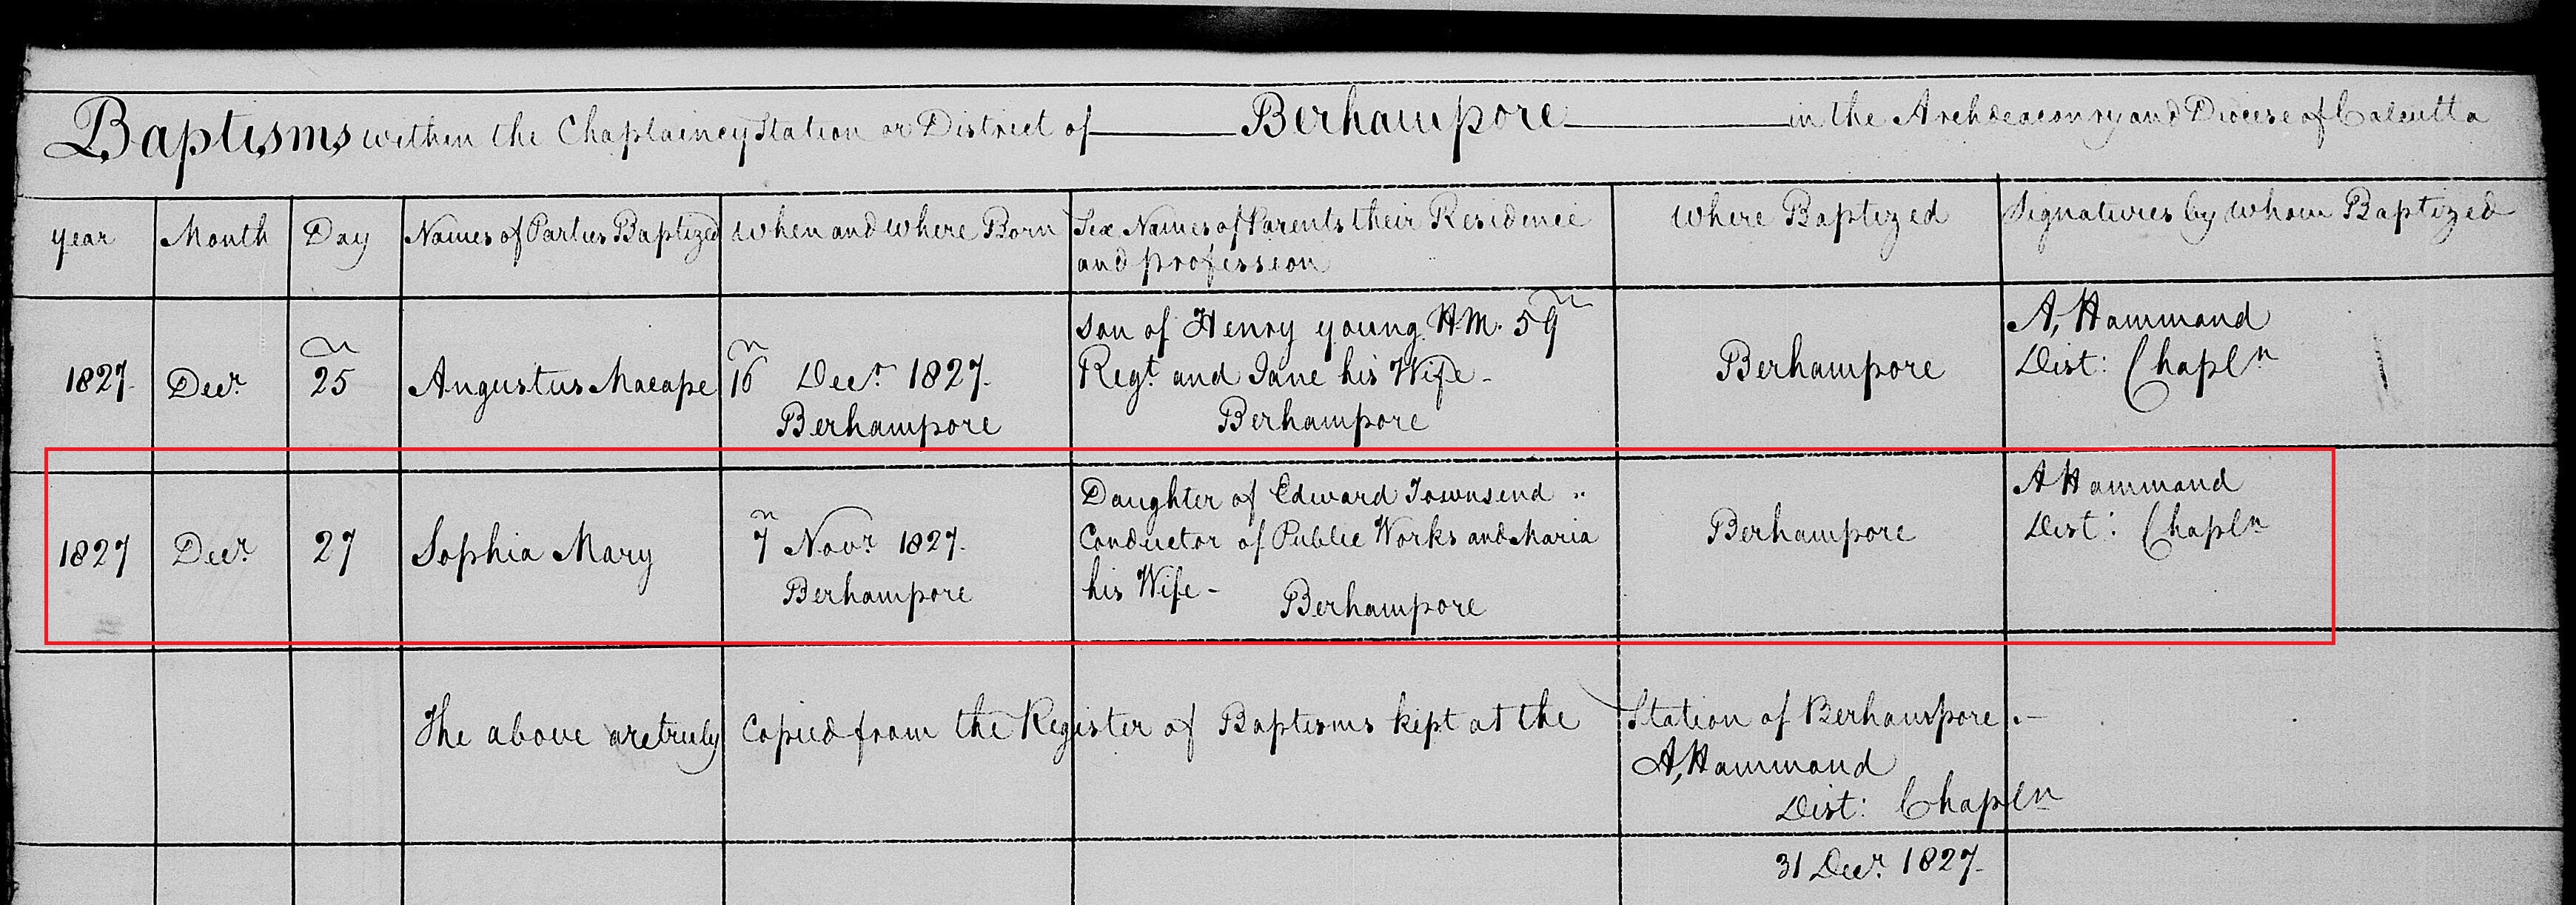 Baptisms within the Chaplaincy Station or District of Berhampore in the Archdeaconry and Diocese of Calcutta
year Month Day Names of Parties Baptized When and where Born Sex Names of Parents their Residence and profession Where Baptized Signatures by whom Baptized
1827 Decr 25 Augustus Macape 16 Decr 1827 Berhampore
son of Henry young H.M. 59
Regt and Jane his Wife -
Berhampore
Berhampore
A, Hammond
Dist: Chapln
1827 Decr 27 Sophia Mary 7 Novr 1827. Berhampore
Daughter of Edward Townsend
Conductor of Public Works and Maria
his Wife - Berhampore
Berhampore
A Hammond
Dist: Chapln
The above are truly Copied from the Register of Baptisms kept at the Station of Berhampore.-
A, Hammond
Dist: Chapln
31 Decr 1827-